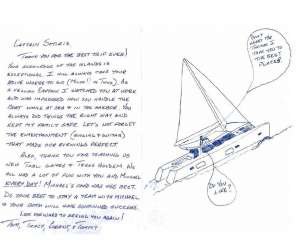 CAPTAIN
THANK YOU FOR THE BEST TRIP EVER!
YOUR KNOWLEDGE OF THE ISLANDS IS
EXCEPTIONAL. I WILL ALWAYS TAKE YOUR
ADVICE WHERE TO GO
A FELLOW CAPTAIN I WATCHED YOU AT WORK
AND WAS IMPRESSED HOW YOU HANDLE THE
BOAT WHILE AT SEA & IN THE. YOU
ALWAYS DID THINGS THE RIGHT WAY AND
KEPT MY FAMILY SAFE. LET'S NOT FORGET
THE ENTERTAINMENT (SINGING & GUITAR)
THAT MADE OUR EVENINGS PERFECT.
ALSO, THANK YOU FOR TEACHING US
NEW TABLE GAMES & TEXAS HOLDEM. WE
ALL HAD A LOT OF FUN WITH YOU AND MICHAEL
EVERY DAY! MICHAEL'S FOOD WAS THE BEST.
DO YOUR BEST TO STAY A TEAM WITH MICHAEL
& YOUR BOTH WILL HAVE CONTINUED SUCCESS.
LOOK FORWARD TO SEEING YOU AGAIN!
TOM,
DON'T
THE
TAKE YOU
TO THE BEST
PLACES!
DO YOU